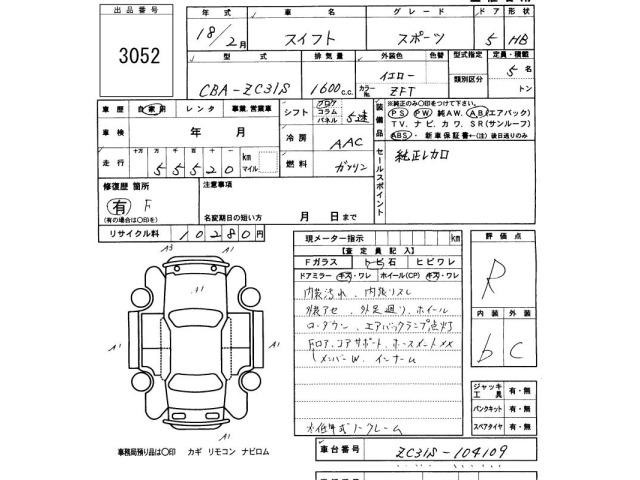 出品番号
3052
年式 車名 グレード ドア 形状
18/2月 スイフト スポーツ 5 HB
型式 排気量 外装色 色替 型式指定 定員・積載
CBA-ZC31S 1600c.c. イエロー 類別区分 5名
カラーNo. ZFT トン
車歴 自家用 レンタ 事業、営業車
車検 年 月
走行 十万 万 千 百 十
55520 km マイル
シフト フロア コラム パネル 5速
冷房 AAC
燃料 ガソリン
装備品
※純正のみ○印をつけて下さい。
PS PW 純AW. AB(エアバック)
TV、ナビ、カワ、SR(サンルーフ)
ABS・新車保証書←(注)後日送りのみ
セールスポイント
純正レカロ
修復歴 箇所
有 F
(有の場合は○印を)
注意事項
名変期日の短い方 月 日まで
リサイクル料 10280円
現メーター指示 km
【査定員記入】
Fガラス トビ石 ヒビワレ
ドアミラー キズ・ワレ ホイール(CP) キズ・ワレ
内装汚れ、内張りスレ
外装アセ、外足廻り、ホイール
ローダウン、エアバックランプ点灯
Fロア、コアサポート、ホースメントXX
メンバーW、インナーム
評価点
R
内装 外装
b C
ジャッキ 工具 有・無
パンクキット 有・無
スペアタイヤ 有・無
A3 A1
A1
A1 A1
A1
事務局預り品は○印 カギ リモコン ナビロム
車台番号 ZC31S-104109